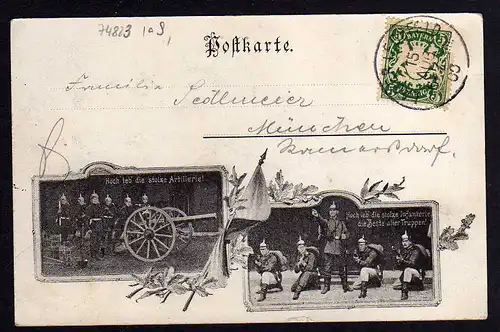 74823 1a9,
Postkarte.
BAYERN
5 5
Familie
Sedlmeier
München
Ramersdorf.
Hoch leb' die stolze Artillerie!
Hoch leb' die stolze Infanterie
die Beste aller Truppen!